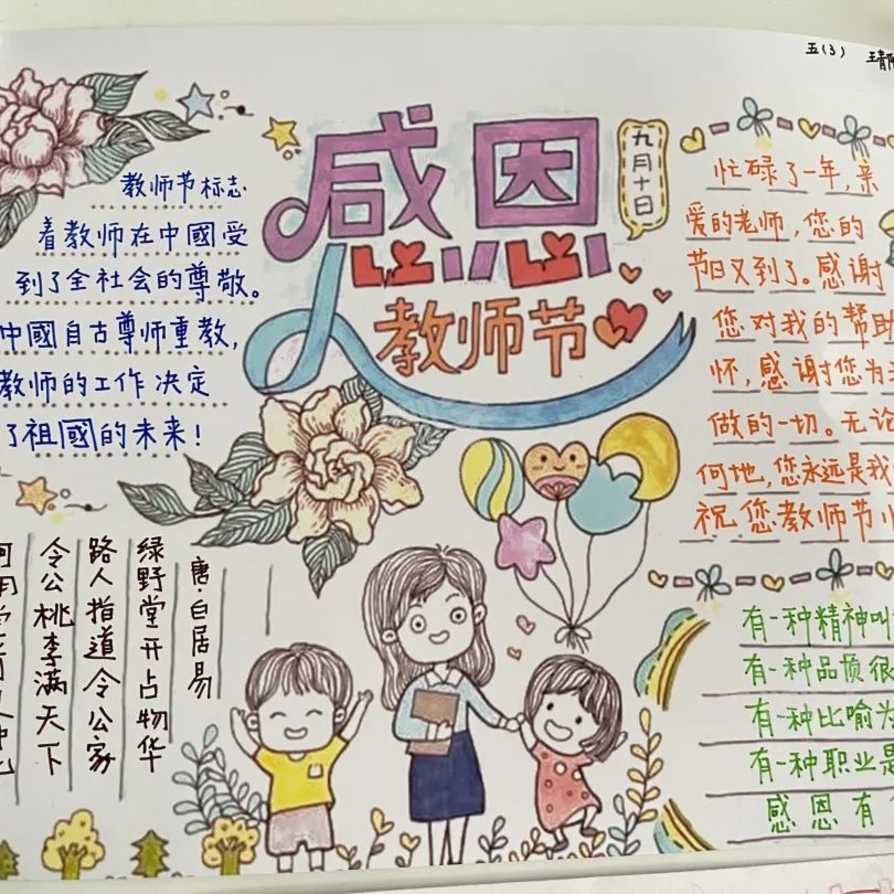 五(3)
感恩
教师节
九月十日
教师节标志
着教师在中國受
到了全社会的尊敬。
中國自古尊师重教,
教师的工作决定
了祖國的未来!
忙碌了一年,亲
爱的老师,您的
节日又到了。感谢
您对我的帮助
怀,感谢您为
做的一切。无论
何地,您永远是我
祝您教师节
唐·白居易
绿野堂开占物华
路人指道令公家
令公桃李满天下
何用堂
有一种精神叫
有一种品质很
有一种比喻为
有一种职业是
感恩有